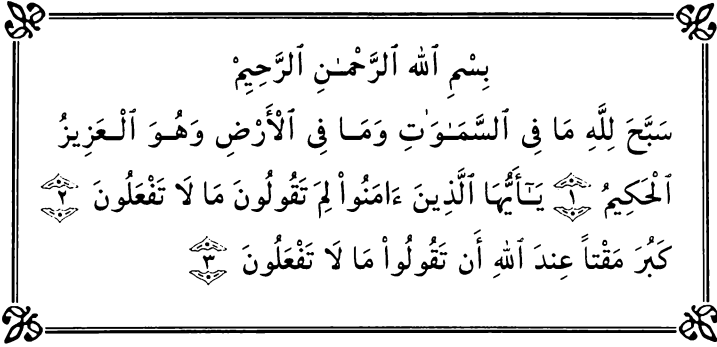 بِسْمِ ٱللهِ ٱلرَّحْمَـٰنِ ٱلرَّحِيمِْ
سَبَّحَ لِلَّهِ مَا فِى ٱلسَّمَـٰوَٰتِ وَمَـا فِى ٱلْأَرْضِ وَهُـوَ ٱلْـعَزِيزُ
ٱلْحَكِيمُ ١ يَـٰٓأَيُّهَا ٱلَّذِينَ ءَامَنُوا۟ لِمَ تَقُولُونَ مَا لَا تَفْعَلُونَ ٢
كَبُرَ مَقْتاً عِندَ ٱللهِ أَن تَقُولُوا۟ مَا لَا تَفْعَلُونَ ٣